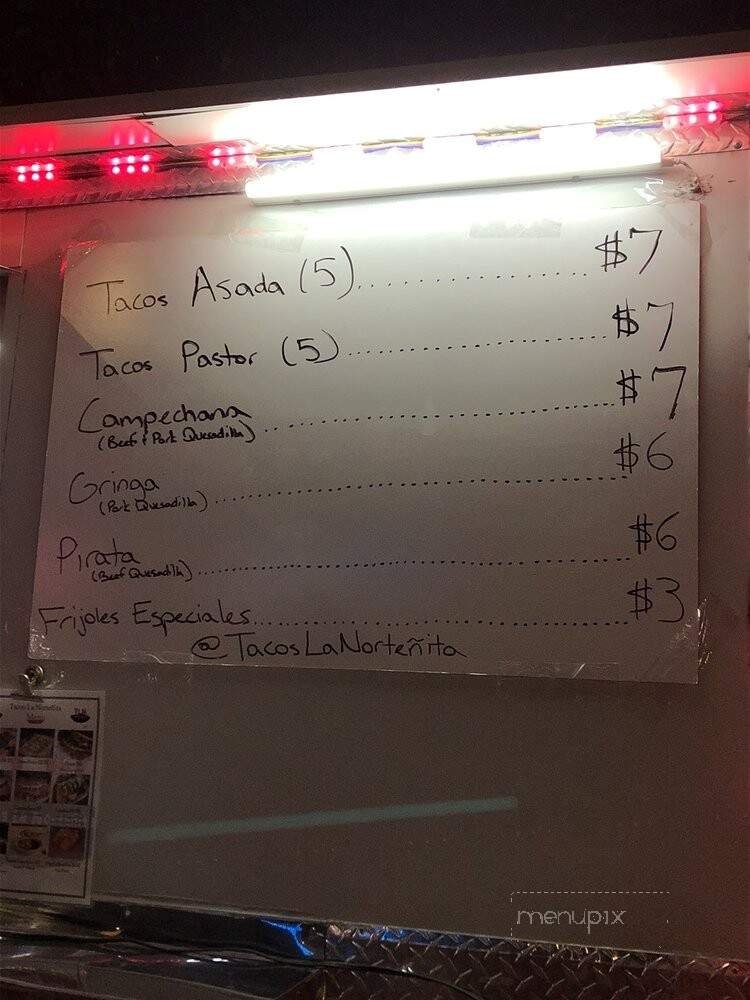 Tacos Asada (5).................$7
Tacos Pastor (5).....................$7
Campechana.............................$7
(Beef & Pork Quesadilla)
Gringa...................................$6
(Pork Quesadilla)
Pirata.....................................$6
(Beef Quesadilla)
Frijoles Especiales...............................$3
@TacosLaNorteñita
Tacos La Norteñita
Menu
menupix